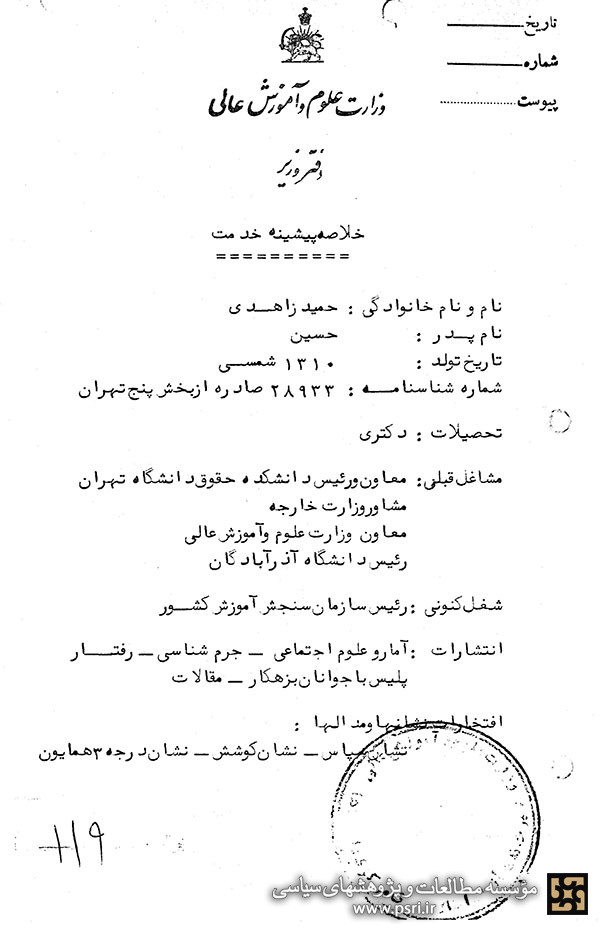 تاریخ
شماره
پیوست
وزارت علوم و آموزش عالی
دفتر وزیر
خلاصه پیشینه خدمت
==========
نام و نام خانوادگی : حمید زاهدی
نام پدر : حسین
تاریخ تولد : ۱۳۱۰ شمسی
شماره شناسنامه : ۲۸۹۳۳ صادره از بخش پنج تهران
تحصیلات : دکتری
مشاغل قبلی : معاون و رئیس دانشکده حقوق دانشگاه تهران
مشاور وزارت خارجه
معاون وزارت علوم و آموزش عالی
رئیس دانشگاه آذرآبادگان
شغل کنونی : رئیس سازمان سنجش آموزش کشور
انتشارات : آمار و علوم اجتماعی – جرم شناسی – رفتار
پلیس با جوانان بزهکار – مقالات
افتخارات نشانها و مدالها :
نشان سپاس – نشان کوشش – نشان درجه ۳ همایون
موسسه مطالعات و پژوهشهای سیاسی
www.psri.ir